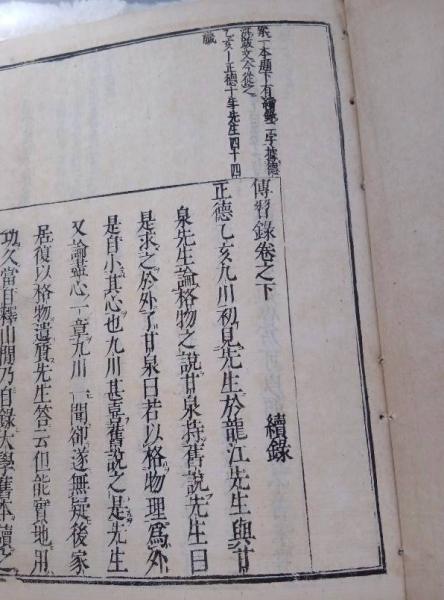 案一本題下有續錄二字據德
洪跋文今從之
乙亥ー正德十年先生四十四
歲
傳習錄卷之下 續錄
正德乙亥九川初見先生於龍江先生與甘
泉先生論格物之說甘泉持舊說先生曰
是求之於外了甘泉曰若以格物理爲外
是自小其心也九川甚喜舊說之是先生
又論盡心一章九川一聞卻遂無疑後家
居復以格物遺質先生答云但能實地用
功久當自釋山間乃自錄大學舊本讀之